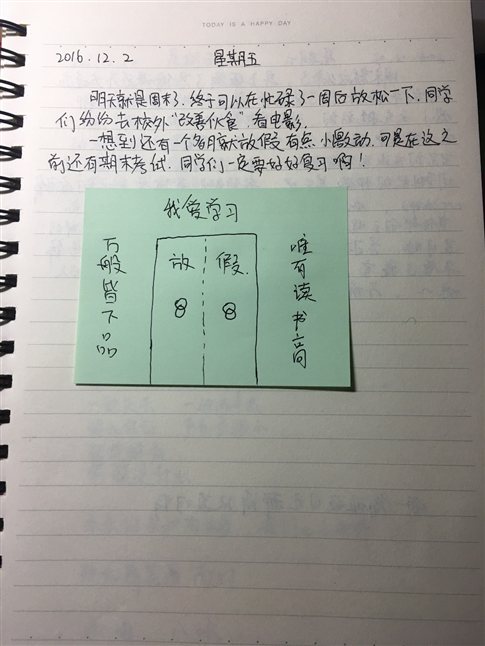 TODAY IS A HAPPY DAY
2016.12.2 星期五
明天就是周末了.终于可以在忙碌了一周后放松一下.同学
们纷纷去校外"改善伙食"看电影.
一想到还有一个多月就放假有点小激动.可是在这之
前还有期末考试.同学们一定要好好复习啊！
我爱学习
万般皆下品
放 假
唯有读书高